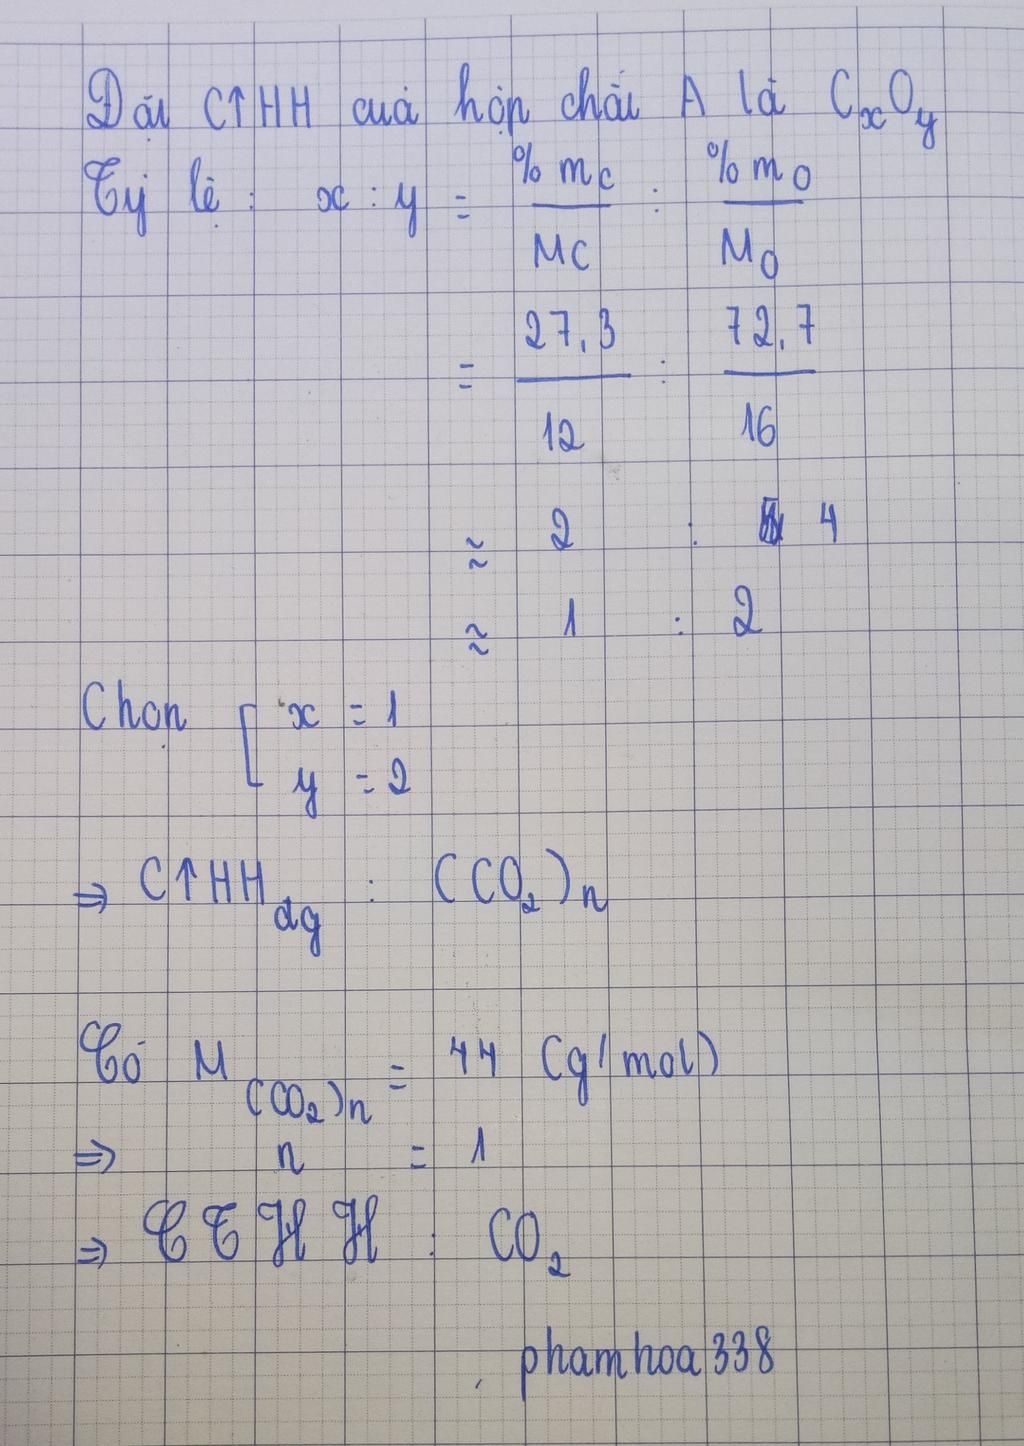 Đặt CTHH của hợp chất A là CₓOᵧ
Tỷ lệ : x : y = % mC / MC : % mO / MO
= 27,3 / 12 : 72,7 / 16
≈ 2 : 4
≈ 1 : 2
Chọn [ x = 1
y = 2
⇒ CTHH đg : (CO₂)n
Có M (CO₂)n = 44 (g/mol)
⇒ n = 1
⇒ CTHH : CO₂
phamhoa338